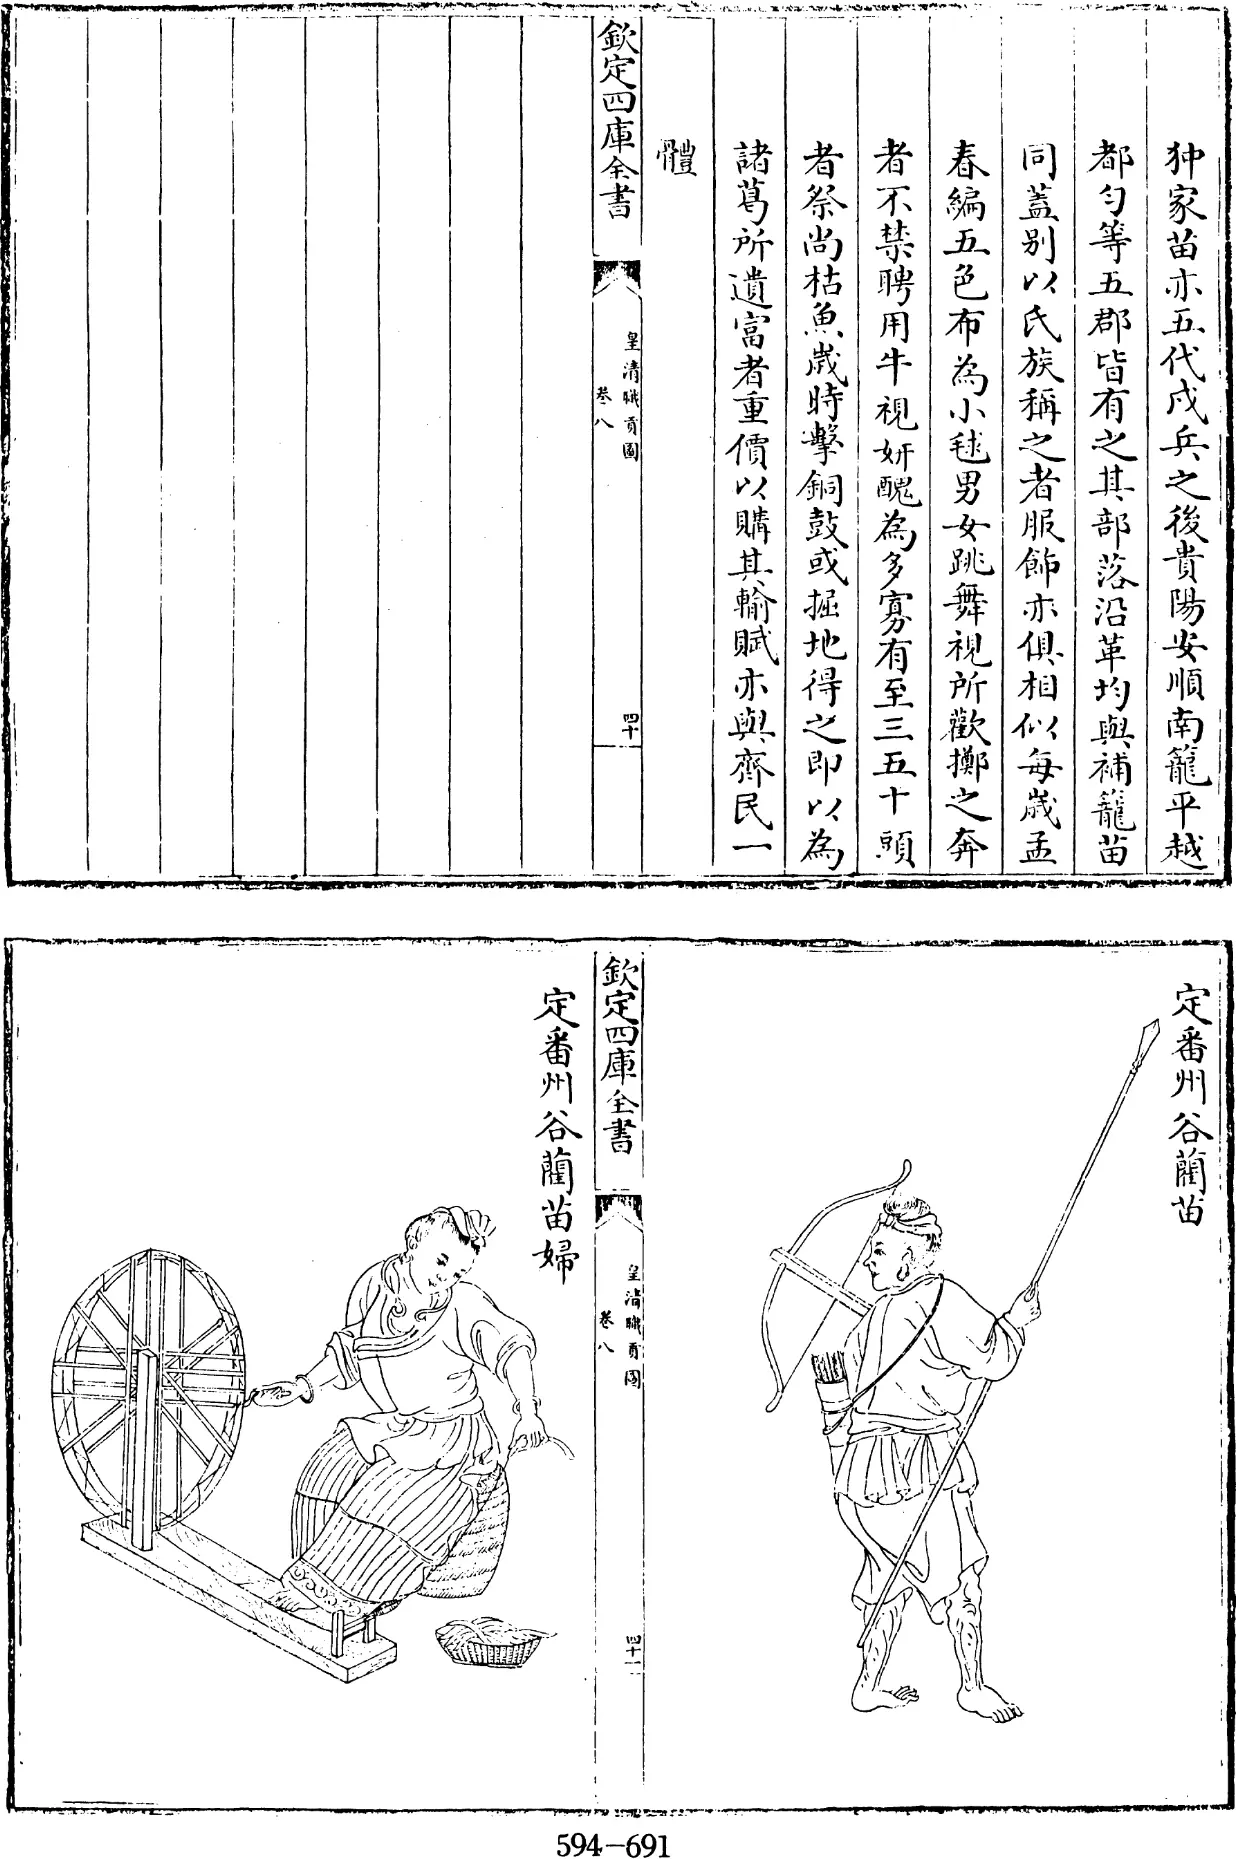 狆家苗亦五代戍兵之後貴陽安順南籠平越
都勻等五郡皆有之其部落沿革均與補籠苗
同蓋别以氏族稱之者服飾亦俱相似每歲孟
春編五色布為小毬男女跳舞視所歡擲之奔
者不禁聘用牛視妍醜為多寡有至三五十頭
者祭尚枯魚歲時擊銅鼓或掘地得之即以為
諸葛所遺富者重價以購其輸賦亦與齊民一
體
欽定四庫全書
皇清職貢圖
卷八
四十
定番州谷藺苗
欽定四庫全書
皇清職貢圖
卷八
四十一
定番州谷藺苗婦
594-691